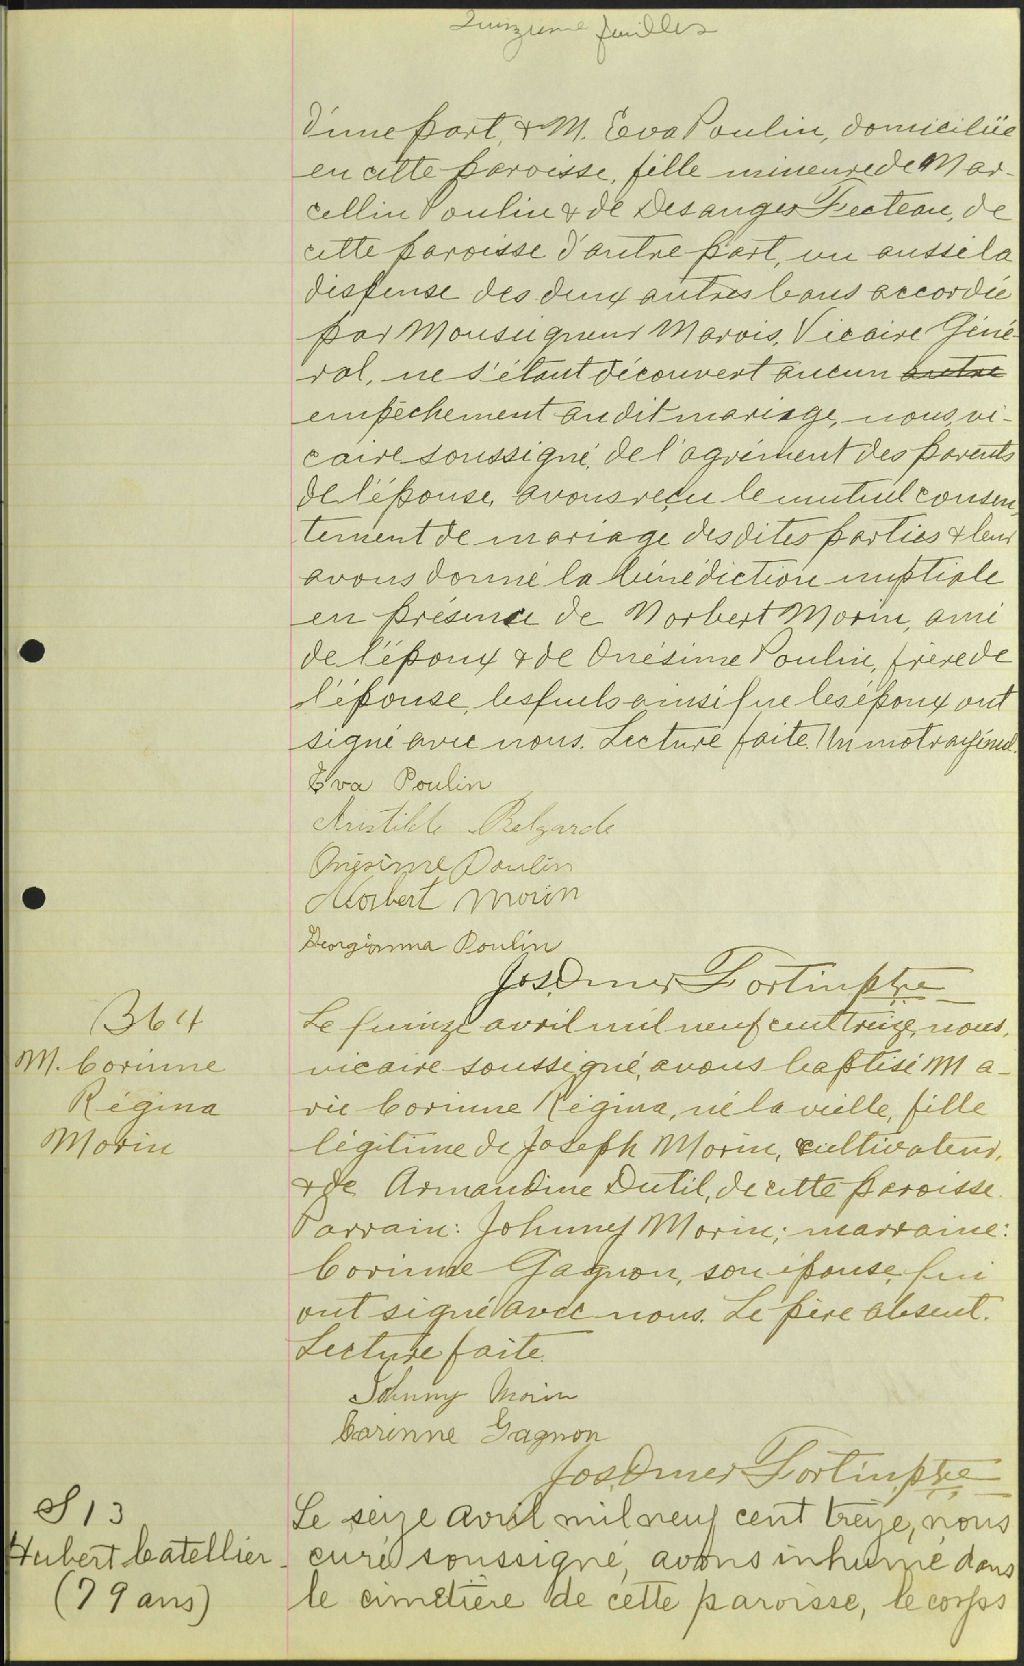 Quinzième feuillet
d'une part, & M. Eva Poulin, domiciliée
en cette paroisse, fille mineure de Mar-
cellin Poulin & de Desanges Fecteau, de
cette paroisse d'autre part, vu aussi la
dispense des deux autres bans accordée
par Monseigneur Marois, Vicaire Géné-
ral, ne s'étant découvert aucun autre
empêchement au dit mariage, nous, vi-
caire soussigné, de l'agrément des parents
de l'épouse, avons reçu le mutuel consen-
tement de mariage des dites parties & leur
avons donné la bénédiction nuptiale
en présence de Norbert Morin, ami
de l'époux & de Onésime Poulin, frère de
l'épouse, lesquels ainsi que les époux ont
signé avec nous. Lecture faite. Un mot rayé nul.
Eva Poulin
Aristide Belgarde
Onésime Poulin
Norbert Morin
Georgianna Poulin
Jos. Omer Fortin ptre
B 64
M. Corinne
Régina
Morin
Le quinze avril mil neuf cent treize, nous,
vicaire soussigné, avons baptisé Ma-
rie Corinne Régina, né la vielle, fille
légitime de Joseph Morin, cultivateur,
& de Armandine Dutil, de cette paroisse.
Parrain: Johnny Morin; marraine:
Corinne Gagnon, son épouse, qui
ont signé avec nous. Le père absent.
Lecture faite.
Johnny Morin
Corinne Gagnon
Jos. Omer Fortin, ptre
S 13
Hubert Catellier
(79 ans)
Le seize avril mil neuf cent treize, nous
curé soussigné, avons inhumé dans
le cimetière de cette paroisse, le corps